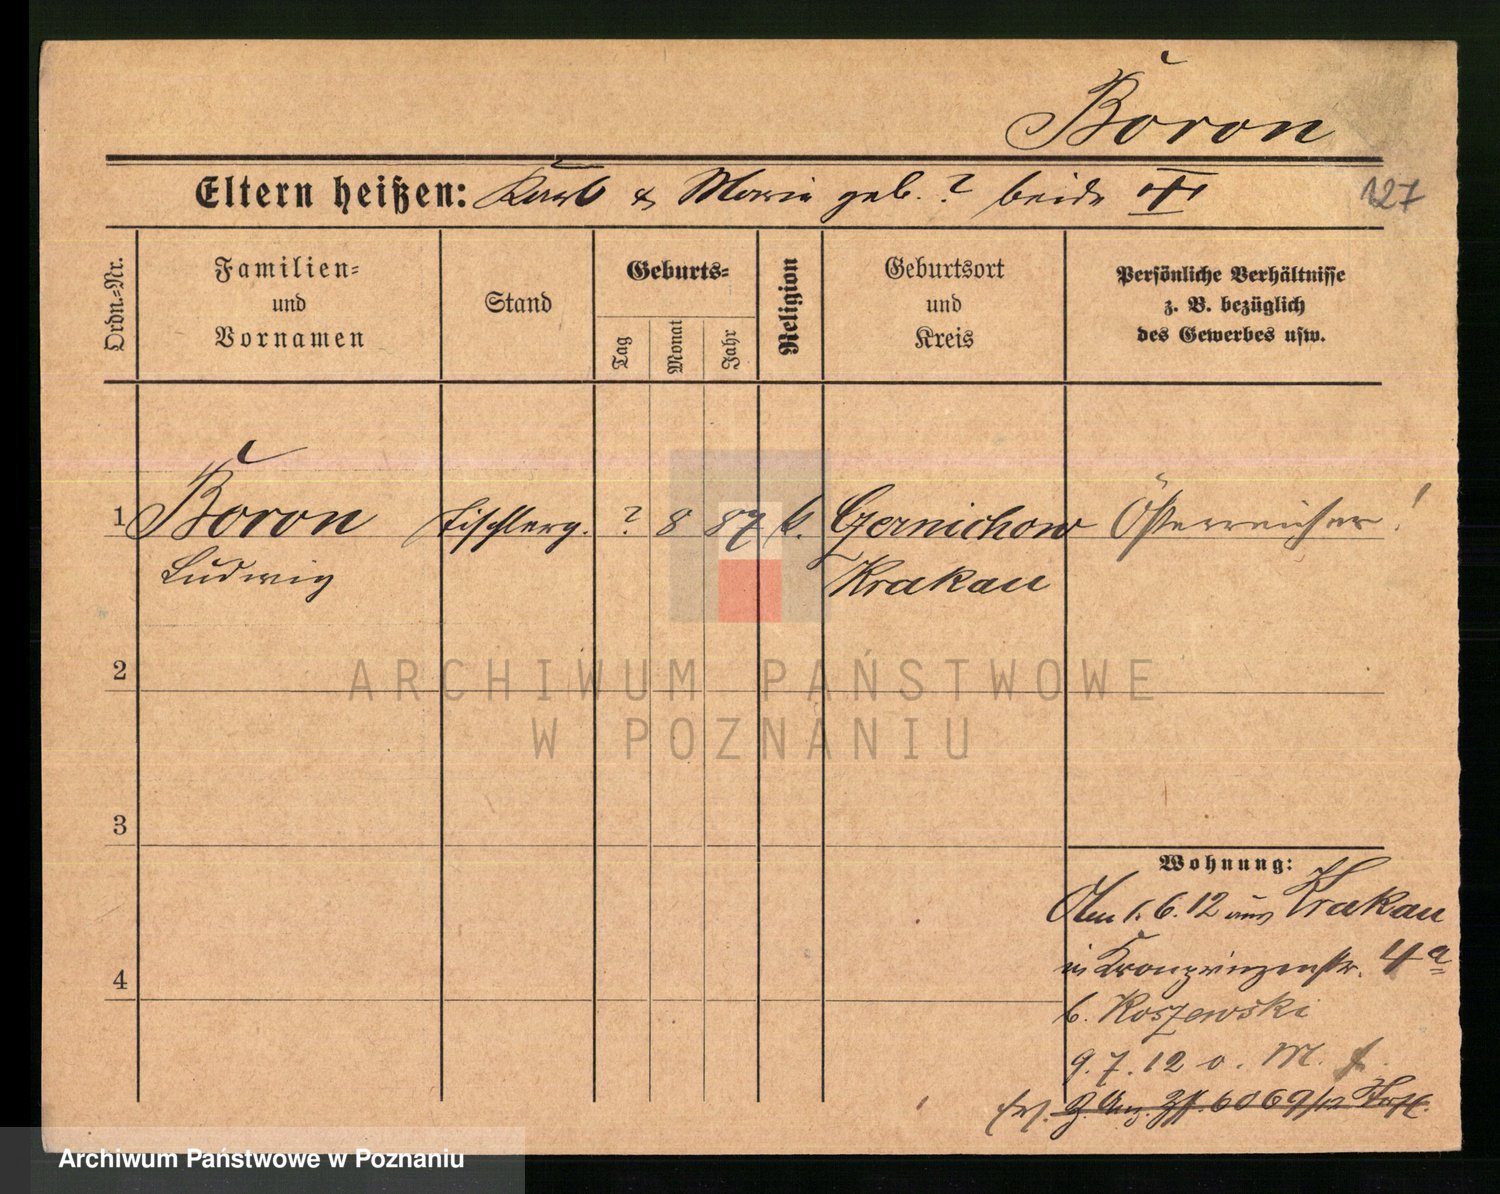 Boron
Eltern heißen: Karl & Maria geb. ? beide
127
Ordn.-Nr.
Familien-
und
Vornamen
Stand
Geburts-
Tag
Monat
Jahr
Religion
Geburtsort
und
Kreis
Persönliche Verhältnisse
z. B. bezüglich
des Gewerbes usw.
1 Boron Tischlerg. ? 8 87 k. Czernichow Österreicher!
Ludwig Krakau
2
ARCHIWUM PAŃSTWOWE
W POZNANIU
3
Wohnung:
1.6.12 aus Krakau
4
in Kronprinzenstr. 4a
b. Koszewski
9.7.12 o. M.
6069/12
Archiwum Państwowe w Poznaniu